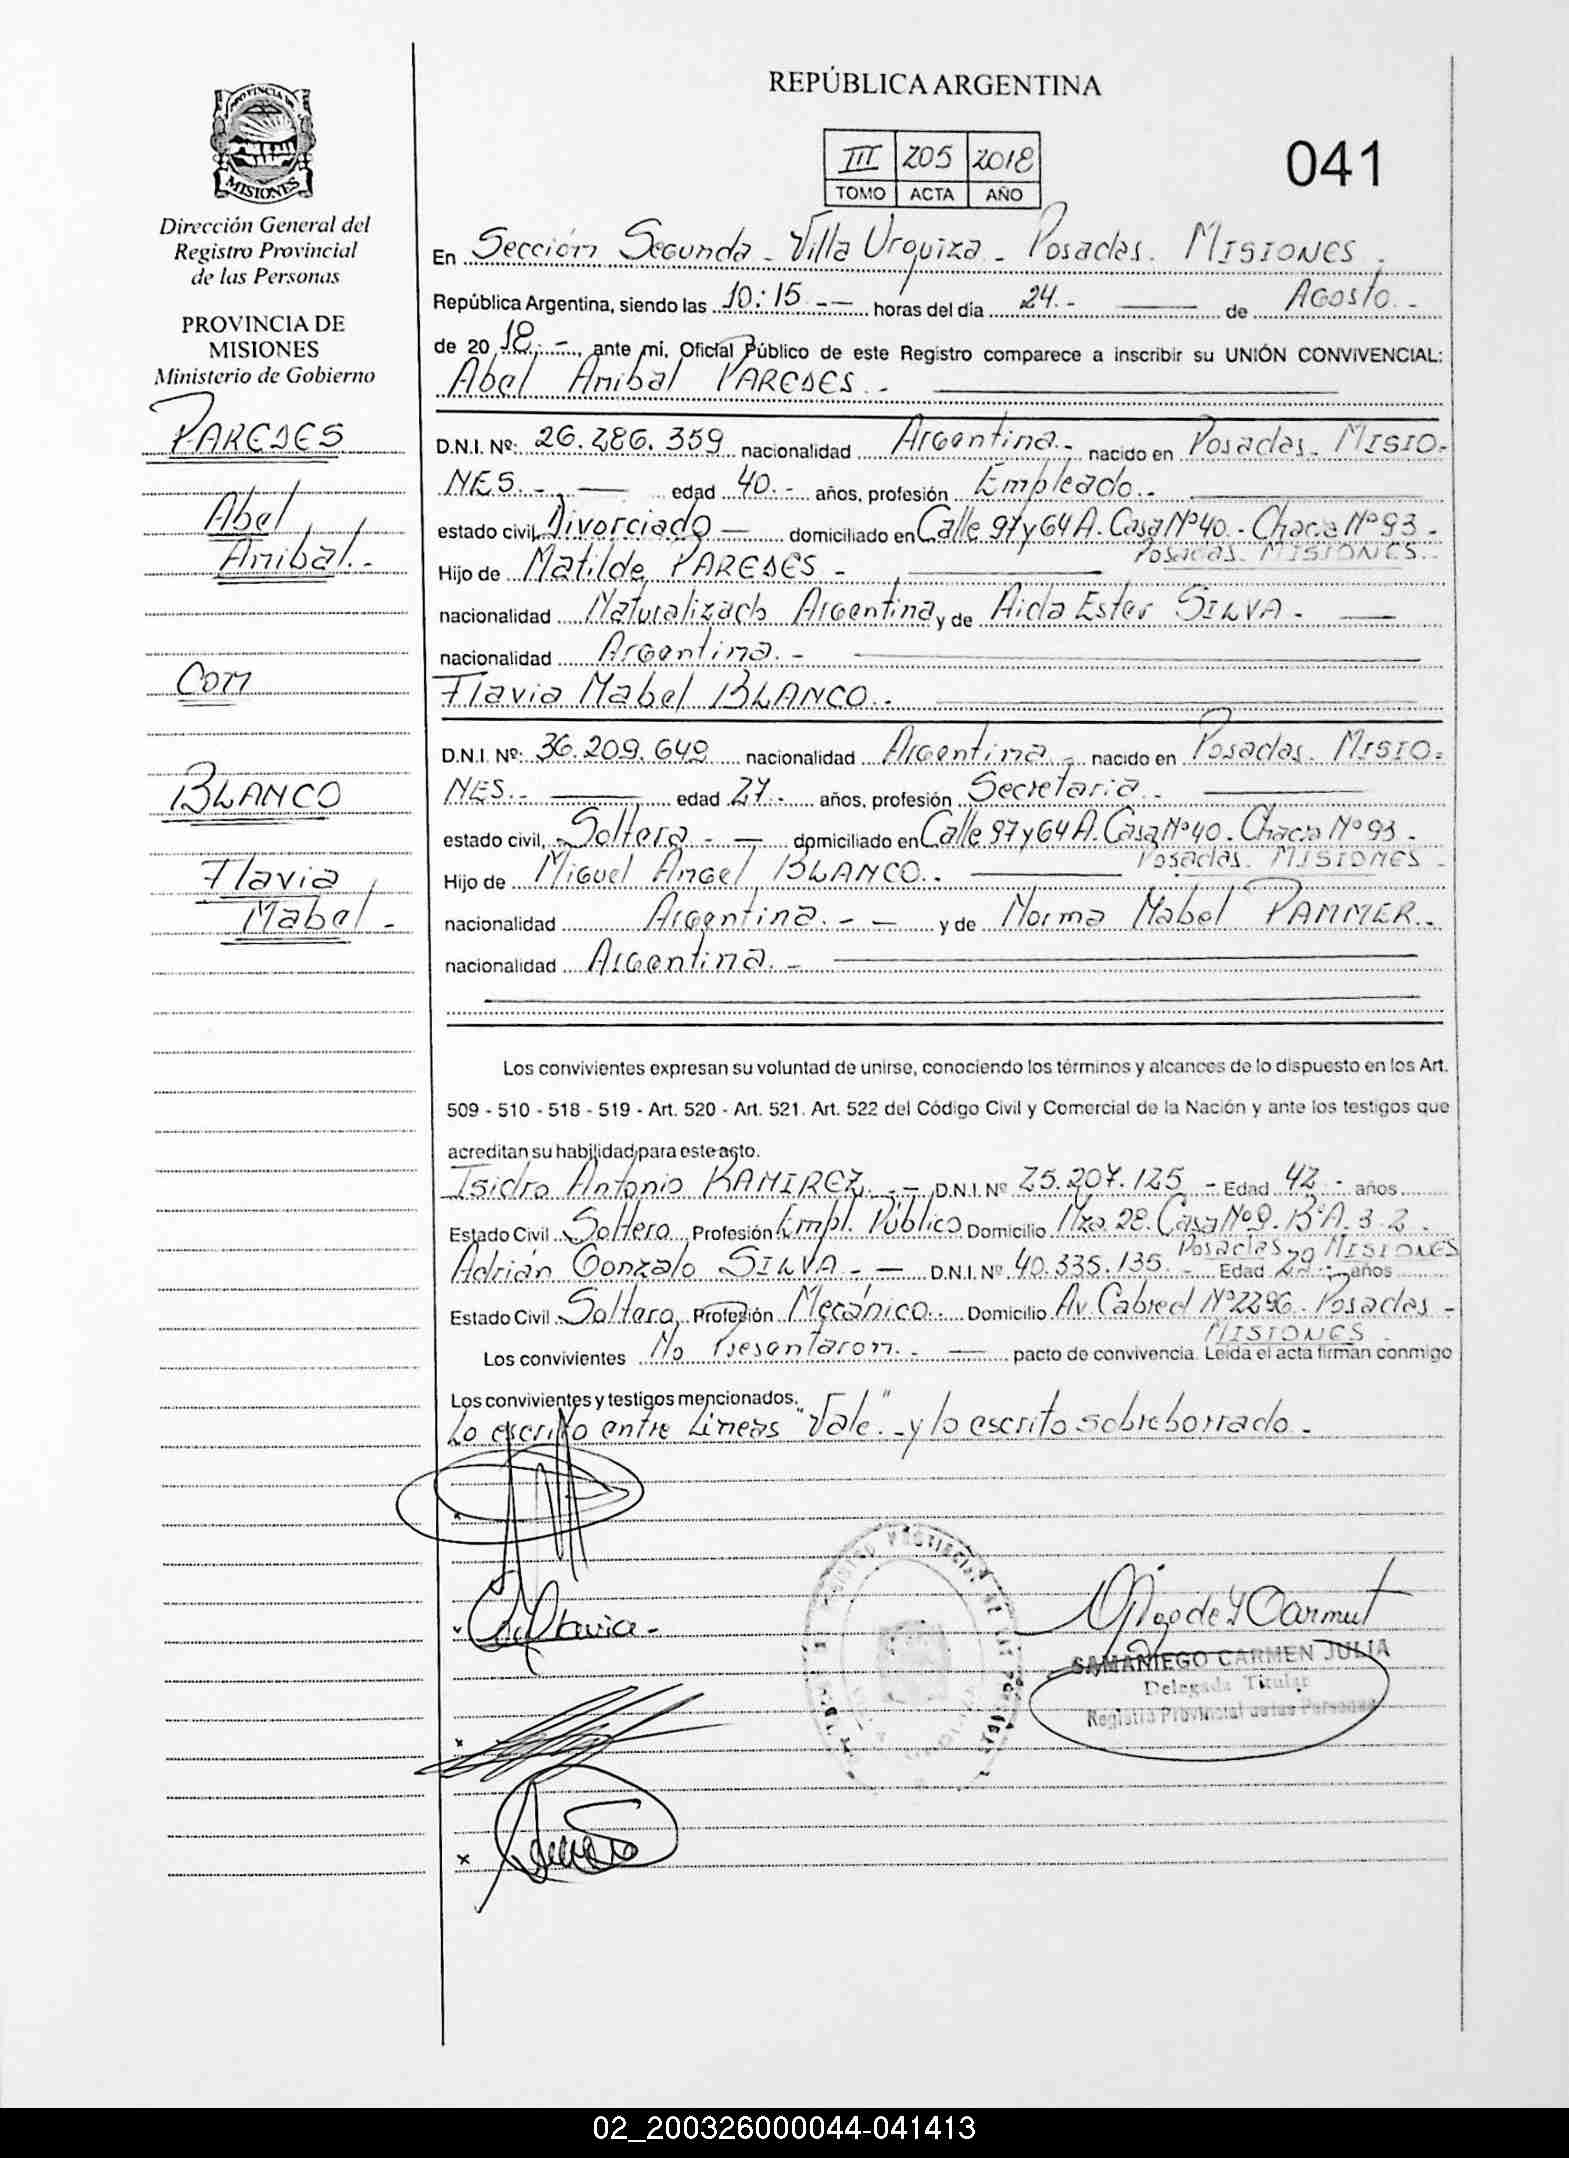 REPÚBLICA ARGENTINA
III 205 2018
TOMO ACTA AÑO
041
PROVINCIA DE
MISIONES
Dirección General del
Registro Provincial
de las Personas
PROVINCIA DE
MISIONES
Ministerio de Gobierno
PAREDES
Abel
Anibal.-
Con
BLANCO
Flavia
Mabel-
En Sección Segunda - Villa Urquiza - Posadas. MISIONES.
República Argentina, siendo las 10:15 -- horas del día 24.- de AGosto.-
de 20 18.-, ante mí, Oficial Público de este Registro comparece a inscribir su UNIÓN CONVIVENCIAL:
Abel Anibal PAREDES.-
D.N.I. Nº: 26.286.359 nacionalidad Argentina.- nacido en Posadas. MISIO-
NES.- edad 40.- años, profesión Empleado.-
estado civil, Divorciado - domiciliado en Calle 97 y 64 A. Casa Nº 40.- Chacra Nº 93 -
Posadas. MISIONES.-
Hijo de Matilde PAREDES -
nacionalidad Naturalizado Argentina y de Aida Ester SILVA -
nacionalidad Argentina.-
Flavia Mabel BLANCO.-
D.N.I. Nº: 36.209.649 nacionalidad Argentina - nacido en Posadas. MISIO-
NES.- edad 27.- años, profesión Secretaria.-
estado civil, Soltera - - domiciliado en Calle 97 y 64 A. Casa Nº 40. Chacra Nº 93 -
Posadas. MISIONES -
Hijo de Miguel Angel BLANCO.-
nacionalidad Argentina. - - y de Norma Mabel PAMMER.-
nacionalidad Argentina.-
Los convivientes expresan su voluntad de unirse, conociendo los términos y alcances de lo dispuesto en los Art.
509 - 510 - 518 - 519 - Art. 520 - Art. 521. Art. 522 del Código Civil y Comercial de la Nación y ante los testigos que
acreditan su habilidad para este acto.
Isidro Antonio RAMIREZ. - - D.N.I. Nº 25.207.125 - Edad 42 - años
Estado Civil Soltero Profesión Empl. Público Domicilio Mza. 28. Casa Nº 9. Bº A. 3-2 -
Posadas MISIONES
Adrián Gonzalo SILVA - - D.N.I. Nº 40.335.135. - Edad años
Estado Civil Soltero Profesión Mecánico.- Domicilio Av. Cabred Nº 2296. Posadas -
MISIONES -
Los convivientes No Presentaron.- pacto de convivencia. Leída el acta firman conmigo
Los convivientes y testigos mencionados.
Lo escrito entre Lineas "Vale".- y lo escrito sobreborrado -
SAMANIEGO CARMEN JULIA
Delegada Titular
Registro Provincial de las Personas
02_200326000044-041413